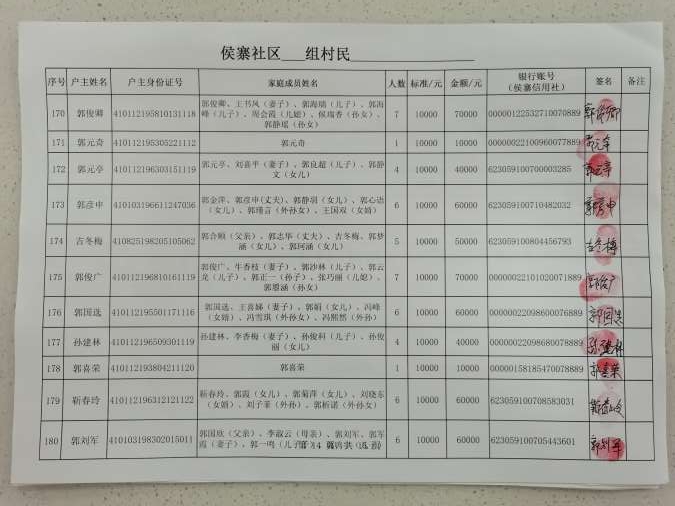 侯寨社区___组村民
序号 户主姓名 户主身份证号 家庭成员姓名 人数 标准/元 金额/元 银行账号 签名 备注
（侯寨信用社）
郭俊卿、王书凤（妻子）、郭海瑞（儿子）、郭海
170 郭俊卿 410112195810131118 峰（儿子）、现会霞（儿媳）、侯瑞香（孙女）、 7 10000 70000 00000122532710070889 郭俊卿
郭静瑶（孙女）
171 郭元奇 410112195305221112 郭元奇 1 10000 10000 00000022109600077889
172 郭元亭 410112196303151119 郭元亭、刘喜平（妻子）、郭良超（儿子）、郭静 4 10000 40000 623059100700003285
文（女儿）
郭金萍、郭彦申(丈夫)、郭静羽（女儿）、郭心语
173 郭彦申 410103196611247036 （女儿）、郭瑾言（外孙女）、王国双（女婿） 6 10000 60000 623059100710482032 郭彦申
174 吉冬梅 410825198205105062 郭合顺（父亲）、郭志华（丈夫）、吉冬梅、郭梦 5 10000 50000 623059100804456793 吉冬梅
涵（女儿）、郭珂涵（女儿）
郭俊广、牛香枝（妻子）、郭沙林（儿子）、郭云
175 郭俊广 410112196810161119 龙（儿子）、郭正一（孙子）、张巧丽（儿媳）、 7 10000 70000 00000022101020071889 郭俊广
郭恩涵（孙女）
176 郭国选 410112195501171116 郭国选、王喜娣（妻子）、郭娟（女儿）、冯峰 6 10000 60000 00000022098600076889 郭国选
（女婿）、冯雪琪（外孙女）、冯熙然（外孙）
177 孙建林 410112196509301119 孙建林、李香梅（妻子）、孙俊科（儿子）、孙俊 4 10000 40000 00000022098680078889 孙建林
丽（女儿）
178 郭喜荣 410112193804211120 郭喜荣 1 10000 10000 00000158185470078889 郭喜荣
靳春玲、郭霞（女儿）、郭菊萍（女儿）、刘晓东
179 靳春玲 410112196312121122 （女婿）、刘子菲（外孙）、郭析诺（外孙女） 6 10000 60000 623059100708583031
180 郭刘军 410103198302015011 郭国欣（父亲）、李淑云（母亲）、郭刘军、郭军 6 10000 60000 623059100705443601 郭刘军
霞（妻子）、郭一鸣（儿子）